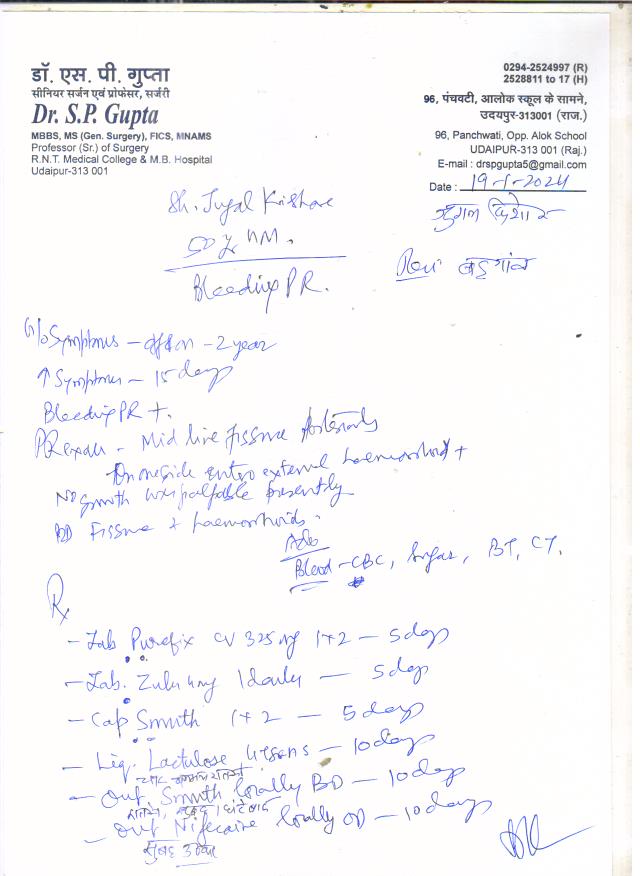 डॉ. एस. पी. गुप्ता
सीनियर सर्जन एवं प्रोफेसर, सर्जरी
Dr. S.P. Gupta
MBBS, MS (Gen. Surgery), FICS, MNAMS
Professor (Sr.) of Surgery
R.N.T. Medical College & M.B. Hospital
Udaipur-313 001
0294-2524997 (R)
2528811 to 17 (H)
96, पंचवटी, आलोक स्कूल के सामने,
उदयपुर-313001 (राज.)
96, Panchwati, Opp. Alok School
UDAIPUR-313 001 (Raj.)
E-mail : drspgupta5@gmail.com
Date : 19-1-2024
Sh. Jugal Kishore
जुगल किशोर
50 Y
बड़गांव
Bleeding PR.
Symptoms - off & on - 2 year
↑ Symptoms - 15 days
Bleeding PR +.
PR exam - Mid line fissure Posteriorly
On one side entero external haemorrhoid +
No growth was palpable presently
Fissure & haemorrhoids.
Adv
Blood - CBC, Sugar, BT, CT.
Rx
- Tab CV 325 mg 1+2 - 5 days
- Tab. 1 daily - 5 days
- Cap Smuth 1+2 - 5 days
- Liq. Lactulose - 10 days
- Oint Smuth locally BD - 10 days
- Oint locally OD - 10 days
सुबह